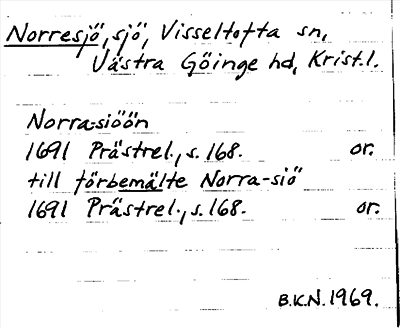 Norresjö, sjö, Visseltofta sn,
Västra Göinge hd, Krist.l.
Norra-siöön
1691 Prästrel., s. 168. or.
till förbemälte Norra-siö
1691 Prästrel., s. 168. or.
B.K.N. 1969.